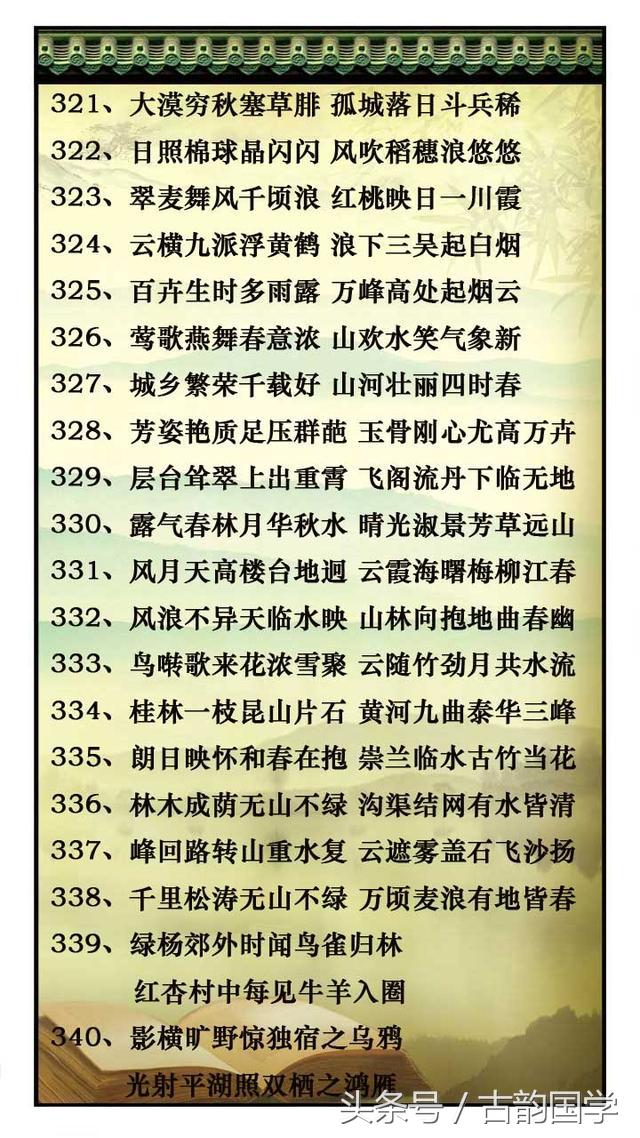 321、大漠穷秋塞草腓 孤城落日斗兵稀
322、日照棉球晶闪闪 风吹稻穗浪悠悠
323、翠麦舞风千顷浪 红桃映日一川霞
324、云横九派浮黄鹤 浪下三吴起白烟
325、百卉生时多雨露 万峰高处起烟云
326、莺歌燕舞春意浓 山欢水笑气象新
327、城乡繁荣千载好 山河壮丽四时春
328、芳姿艳质足压群葩 玉骨刚心尤高万卉
329、层台耸翠上出重霄 飞阁流丹下临无地
330、露气春林月华秋水 晴光淑景芳草远山
331、风月天高楼台地迥 云霞海曙梅柳江春
332、风浪不异天临水映 山林向抱地曲春幽
333、鸟啭歌来花浓雪聚 云随竹劲月共水流
334、桂林一枝昆山片石 黄河九曲泰华三峰
335、朗日映怀和春在抱 崇兰临水古竹当花
336、林木成荫无山不绿 沟渠结网有水皆清
337、峰回路转山重水复 云遮雾盖石飞沙扬
338、千里松涛无山不绿 万顷麦浪有地皆春
339、绿杨郊外时闻鸟雀归林
红杏村中每见牛羊入圈
340、影横旷野惊独宿之乌鸦
光射平湖照双栖之鸿雁
头条号 / 古韵国学